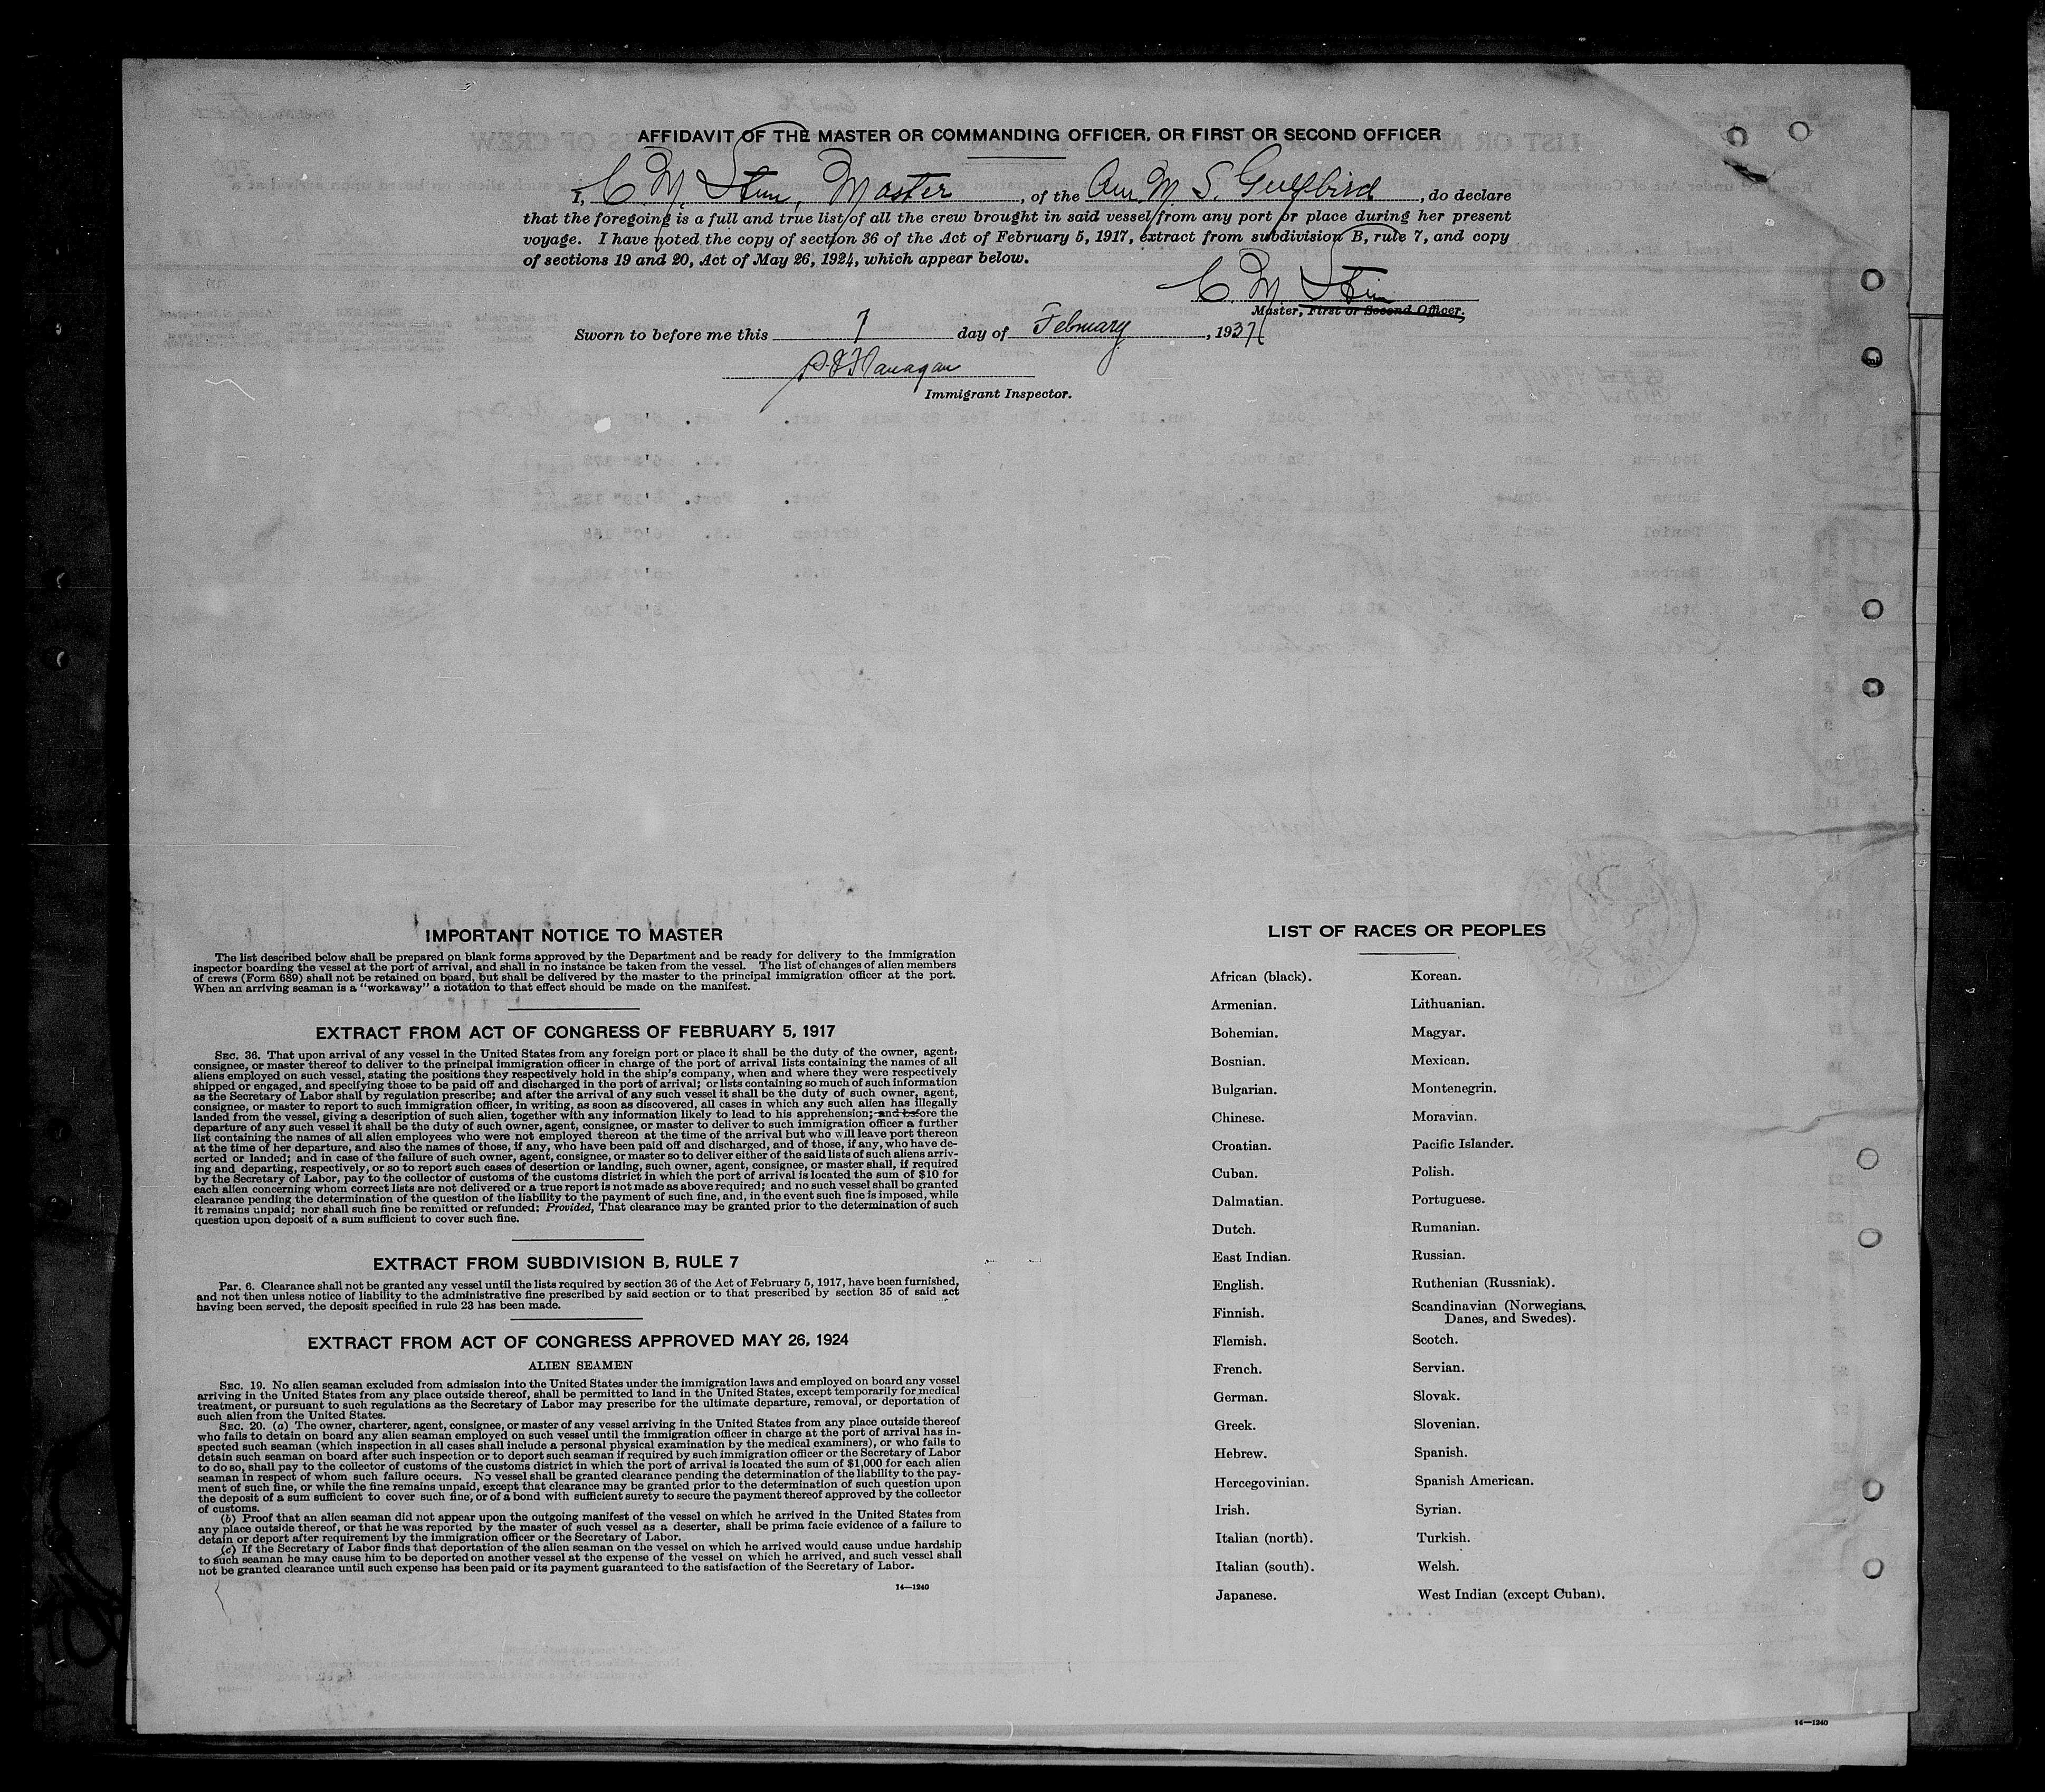 AFFIDAVIT OF THE MASTER OR COMMANDING OFFICER, OR FIRST OR SECOND OFFICER
I, C. M. Stein, Master, of the Am. M. S. Gulfbird, do declare
that the foregoing is a full and true list of all the crew brought in said vessel from any port or place during her present
voyage. I have noted the copy of section 36 of the Act of February 5, 1917, extract from subdivision B, rule 7, and copy
of sections 19 and 20, Act of May 26, 1924, which appear below.
C. M. Stein
Master, First or Second Officer.
Sworn to before me this 7 day of February, 1937
Flanagan
Immigrant Inspector.
IMPORTANT NOTICE TO MASTER
The list described below shall be prepared on blank forms approved by the Department and be ready for delivery to the immigration
inspector boarding the vessel at the port of arrival, and shall in no instance be taken from the vessel. The list of changes of alien members
of crews (Form 689) shall not be retained on board, but shall be delivered by the master to the principal immigration officer at the port.
When an arriving seaman is a "workaway" a notation to that effect should be made on the manifest.
EXTRACT FROM ACT OF CONGRESS OF FEBRUARY 5, 1917
SEC. 36. That upon arrival of any vessel in the United States from any foreign port or place it shall be the duty of the owner, agent,
consignee, or master thereof to deliver to the principal immigration officer in charge of the port of arrival lists containing the names of all
aliens employed on such vessel, stating the positions they respectively hold in the ship's company, when and where they were respectively
shipped or engaged, and specifying those to be paid off and discharged in the port of arrival; or lists containing so much of such information
as the Secretary of Labor shall by regulation prescribe; and after the arrival of any such vessel it shall be the duty of such owner, agent,
consignee, or master to report to such immigration officer, in writing, as soon as discovered, all cases in which any such alien has illegally
landed from the vessel, giving a description of such alien, together with any information likely to lead to his apprehension; and before the
departure of any such vessel it shall be the duty of such owner, agent, consignee, or master to deliver to such immigration officer a further
list containing the names of all alien employees who were not employed thereon at the time of the arrival but who will leave port thereon
at the time of her departure, and also the names of those, if any, who have been paid off and discharged, and of those, if any, who have de-
serted or landed; and in case of the failure of such owner, agent, consignee, or master so to deliver either of the said lists of such aliens arriv-
ing and departing, respectively, or so to report such cases of desertion or landing, such owner, agent, consignee, or master shall, if required
by the Secretary of Labor, pay to the collector of customs of the customs district in which the port of arrival is located the sum of $10 for
each alien concerning whom correct lists are not delivered or a true report is not made as above required; and no such vessel shall be granted
clearance pending the determination of the question of the liability to the payment of such fine, and, in the event such fine is imposed, while
it remains unpaid; nor shall such fine be remitted or refunded: Provided, That clearance may be granted prior to the determination of such
question upon deposit of a sum sufficient to cover such fine.
EXTRACT FROM SUBDIVISION B, RULE 7
Par. 6. Clearance shall not be granted any vessel until the lists required by section 36 of the Act of February 5, 1917, have been furnished,
and not then unless notice of liability to the administrative fine prescribed by said section or to that prescribed by section 35 of said act
having been served, the deposit specified in rule 23 has been made.
EXTRACT FROM ACT OF CONGRESS APPROVED MAY 26, 1924
ALIEN SEAMEN
SEC. 19. No alien seaman excluded from admission into the United States under the immigration laws and employed on board any vessel
arriving in the United States from any place outside thereof, shall be permitted to land in the United States, except temporarily for medical
treatment, or pursuant to such regulations as the Secretary of Labor may prescribe for the ultimate departure, removal, or deportation of
such alien from the United States.
SEC. 20. (a) The owner, charterer, agent, consignee, or master of any vessel arriving in the United States from any place outside thereof
who fails to detain on board any alien seaman employed on such vessel until the immigration officer in charge at the port of arrival has in-
spected such seaman (which inspection in all cases shall include a personal physical examination by the medical examiners), or who fails to
detain such seaman on board after such inspection or to deport such seaman if required by such immigration officer or the Secretary of Labor
to do so, shall pay to the collector of customs of the customs district in which the port of arrival is located the sum of $1,000 for each alien
seaman in respect of whom such failure occurs. No vessel shall be granted clearance pending the determination of the liability to the pay-
ment of such fine, or while the fine remains unpaid, except that clearance may be granted prior to the determination of such question upon
the deposit of a sum sufficient to cover such fine, or of a bond with sufficient surety to secure the payment thereof approved by the collector
of customs.
(b) Proof that an alien seaman did not appear upon the outgoing manifest of the vessel on which he arrived in the United States from
any place outside thereof, or that he was reported by the master of such vessel as a deserter, shall be prima facie evidence of a failure to
detain or deport after requirement by the immigration officer or the Secretary of Labor.
(c) If the Secretary of Labor finds that deportation of the alien seaman on the vessel on which he arrived would cause undue hardship
to such seaman he may cause him to be deported on another vessel at the expense of the vessel on which he arrived, and such vessel shall
not be granted clearance until such expense has been paid or its payment guaranteed to the satisfaction of the Secretary of Labor.
14—1240
LIST OF RACES OR PEOPLES
African (black).
Armenian.
Bohemian.
Bosnian.
Bulgarian.
Chinese.
Croatian.
Cuban.
Dalmatian.
Dutch.
East Indian.
English.
Finnish.
Flemish.
French.
German.
Greek.
Hebrew.
Hercegovinian.
Irish.
Italian (north).
Italian (south).
Japanese.
Korean.
Lithuanian.
Magyar.
Mexican.
Montenegrin.
Moravian.
Pacific Islander.
Polish.
Portuguese.
Rumanian.
Russian.
Ruthenian (Russniak).
Scandinavian (Norwegians,
Danes, and Swedes).
Scotch.
Servian.
Slovak.
Slovenian.
Spanish.
Spanish American.
Syrian.
Turkish.
Welsh.
West Indian (except Cuban).
14—1240